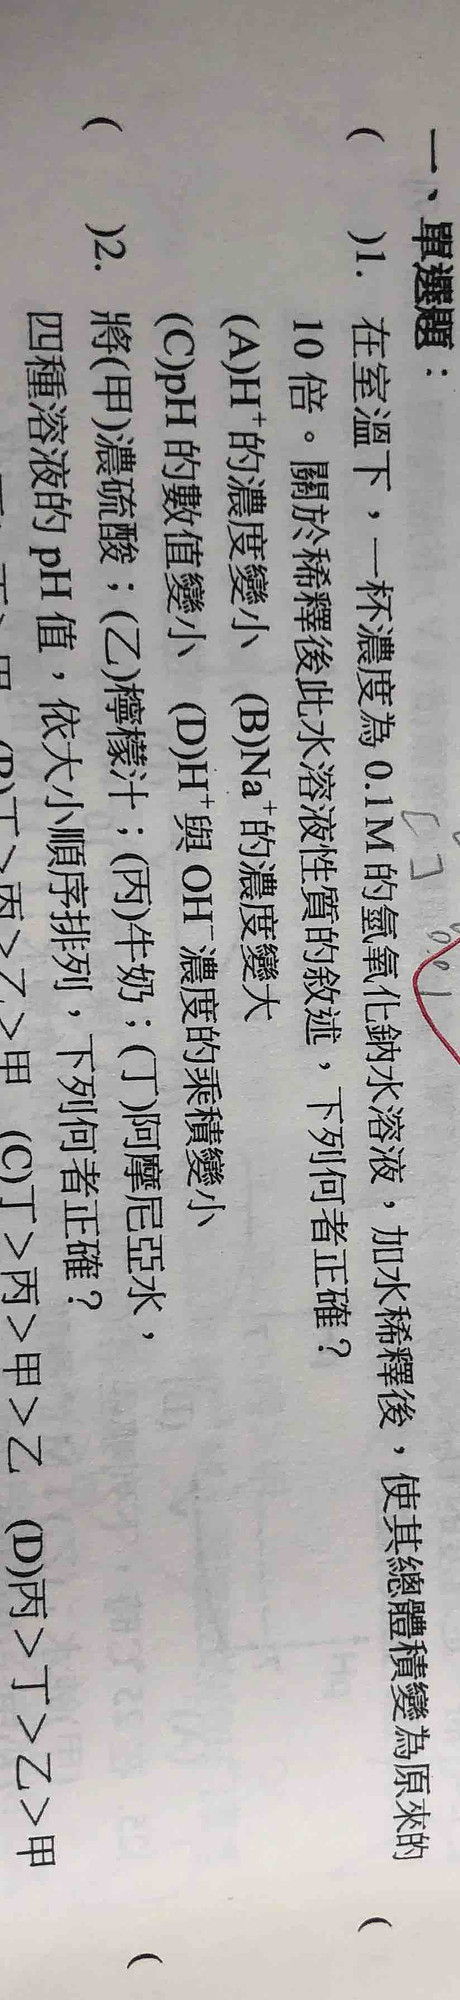 一、單選題：
(　　)1. 在室溫下，一杯濃度為 0.1M 的氫氧化鈉水溶液，加水稀釋後，使其總體積變為原來的
10 倍。關於稀釋後此水溶液性質的敘述，下列何者正確？
(A)H⁺的濃度變小 (B)Na⁺的濃度變大
(C)pH 的數值變小 (D)H⁺與 OH⁻濃度的乘積變小
(　　)2. 將(甲)濃硫酸；(乙)檸檬汁；(丙)牛奶；(丁)阿摩尼亞水，
四種溶液的 pH 值，依大小順序排列，下列何者正確？
(B)丁＞丙＞乙＞甲 (C)丁＞丙＞甲＞乙 (D)丙＞丁＞乙＞甲